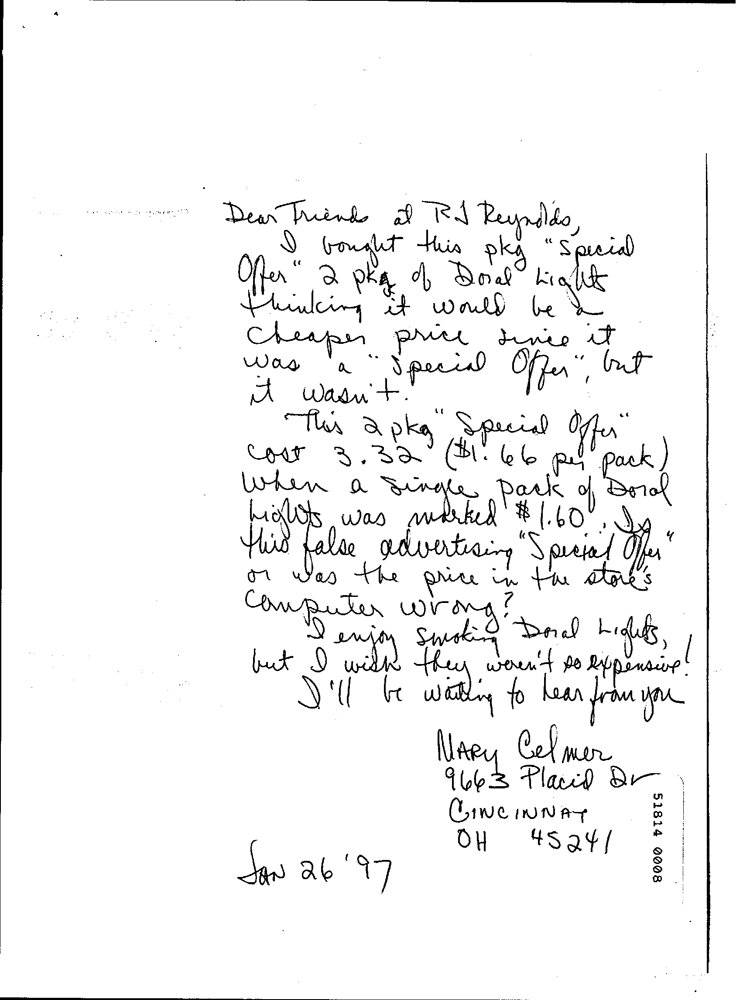 Dear Friends at RJ Reynolds,
I bought this pkg "Special
Offer" 2 pkg of Doral Lights
thinking it would be a
cheaper price since it
was a "Special Offer", but
it wasn't.
This 2 pkg "Special Offer"
cost 3.32 ($1.66 per pack)
when a single pack of Doral
Lights was marked $1.60. Is
this false advertising "Special Offer"
or was the price in the store's
computer wrong?
I enjoy smoking Doral Lights,
but I wish they weren't so expensive!
I'll be waiting to hear from you
MARY Celmer
9663 Placid Dr
CINCINNAT
OH 45241
JAN 26 '97
51814 0008